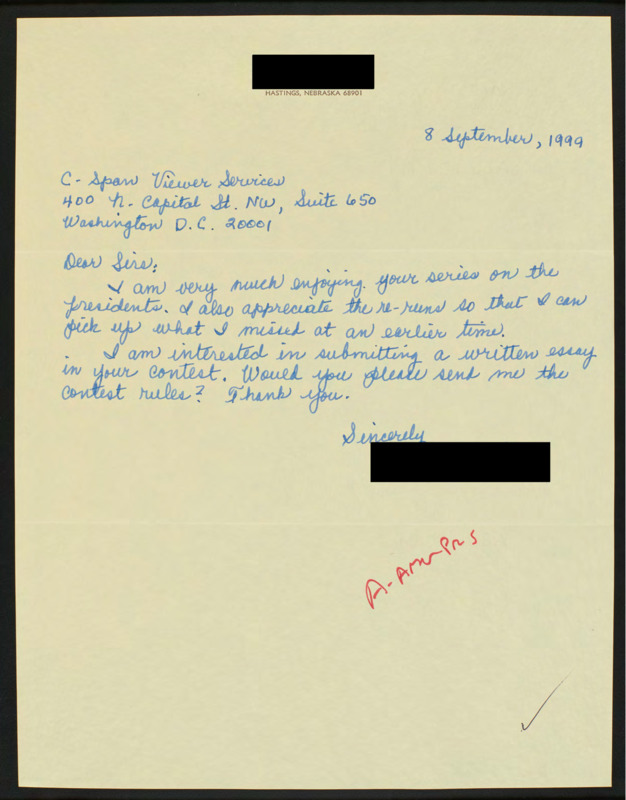 HASTINGS, NEBRASKA 68901
8 September, 1999
C-Span Viewer Services
400 N. Capital St. NW, Suite 650
Washington D.C. 20001
Dear Sirs:
I am very much enjoying your series on the
presidents. I also appreciate the re-runs so that I can
pick up what I missed at an earlier time.
I am interested in submitting a written essay
in your contest. Would you please send me the
contest rules? Thank you.
Sincerely